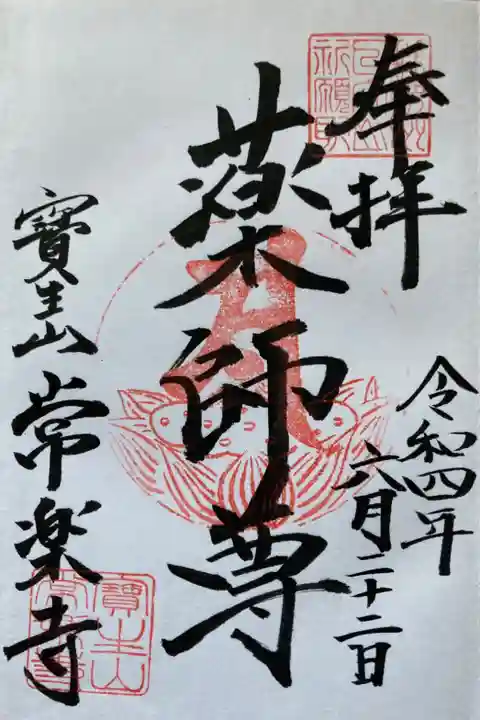 奉拝
令和四年
六月二十二日
薬師尊
寳生山 常楽寺
寳生山
常楽寺